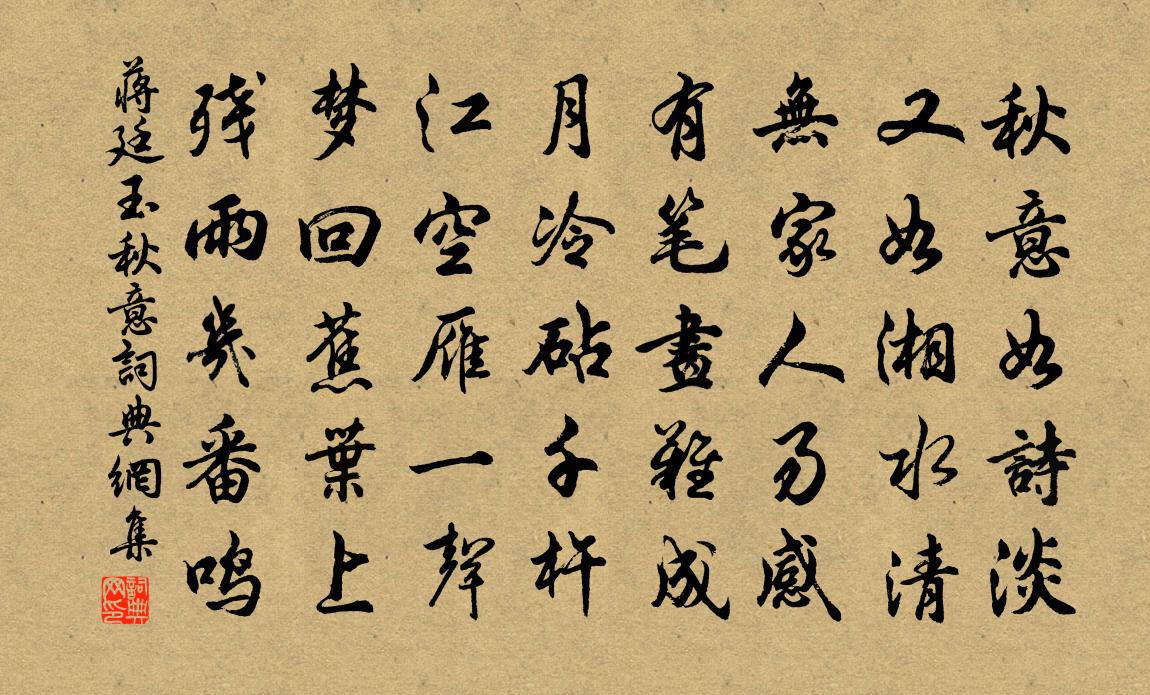 秋意如詩淡
又如湘水清
無家人易感
有笔畫難成
月冷砧千杵
江空雁一聲
梦回蕉葉上
残雨幾番鳴
蔣廷玉秋意詞典網集
詞典网印